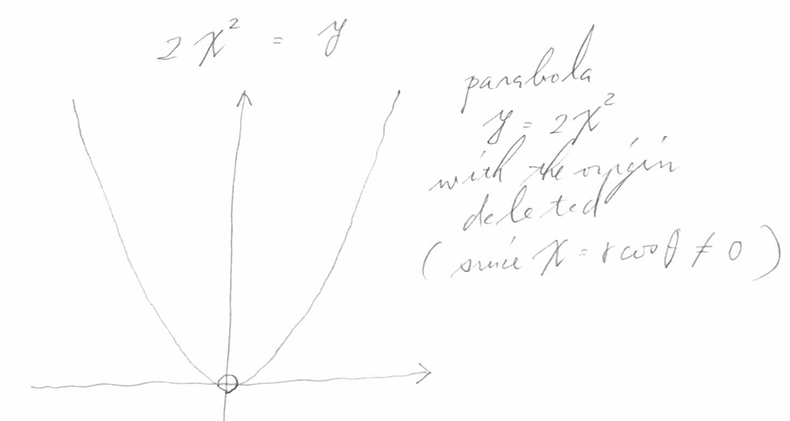 2x² = y
parabola
y = 2x²
with the origin
deleted
(since x = r cos θ ≠ 0)